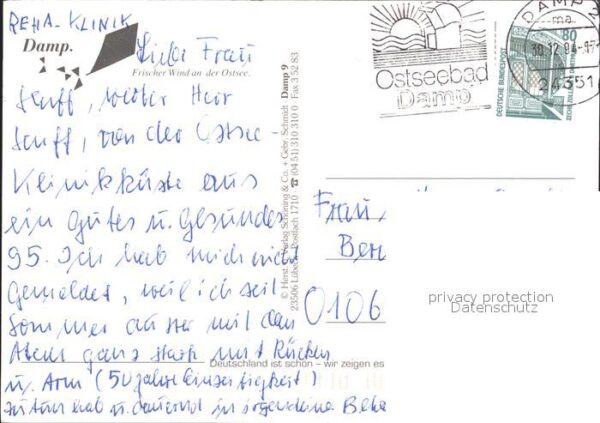 REHA-KLINIK
Damp.
Frischer Wind an der Ostsee.
Liebe Frau
Senff, lieber Herr
Senff, von der Ostsee-
Klinikküste aus
ein gutes u. gesundes
95. Ich hab mich nicht
gemeldet, weil ich seit
Sommer ausser mit dem
Atem ganz stark mit Rücken
u. Arm (50 Jahre Einseitigkeit)
zu tun hab u. dauernd in irgendeine Beha
Deutschland ist schön – wir zeigen es
© Herst. u. Verlag Schöning & Co. + Gebr. Schmidt Damp 9
23506 Lübeck · Postfach 1710 · ☎ (04 51) 310 310 0 · Fax 3 52 83
Ostseebad
Damp
DAMP 2
ma
30.12.94
24351
80
DEUTSCHE BUNDESPOST
Frau
Ber
0106
privacy protection
Datenschutz